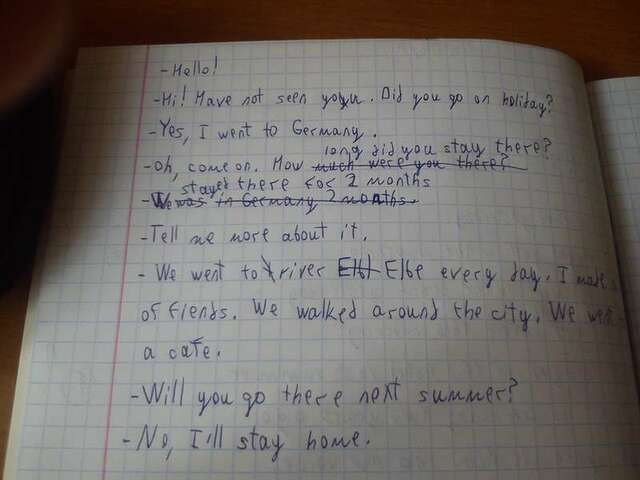 - Hello!
- Hi! Have not seen you. Did you go on holiday?
- Yes, I went to Germany.
long did you stay there?
- Oh, come on. How much were you there?
stayed there for 2 months
- We was in Germany 2 months.
- Tell me more about it.
- We went to river Elbe every day. I made
of fiends. We walked around the city. We went
a cafe.
- Will you go there next summer?
- No, I'll stay home.